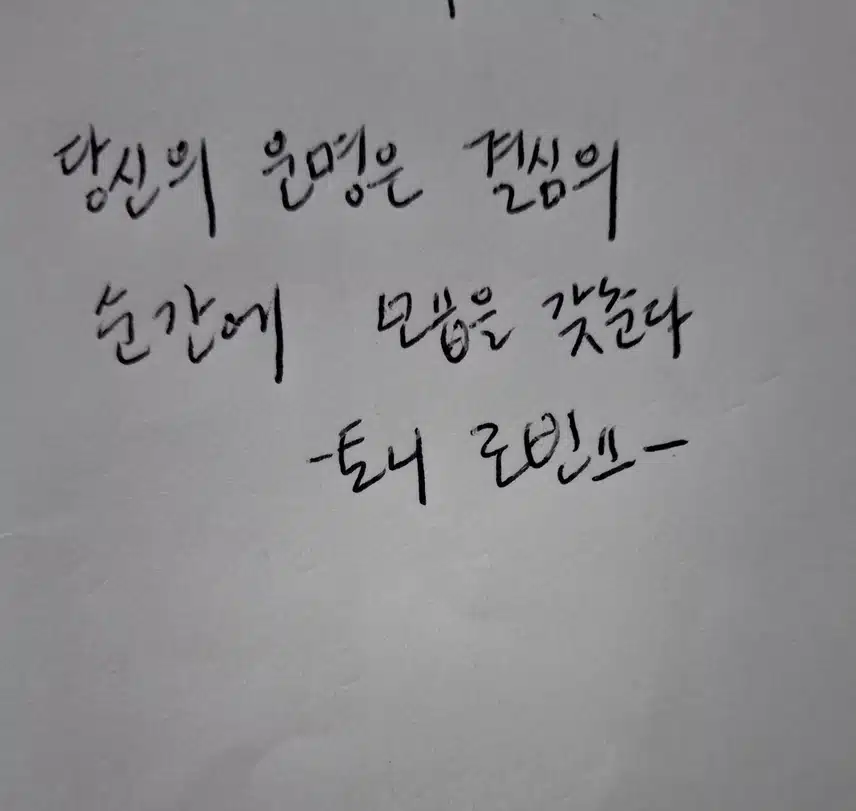 당신의 운명은 결심의
순간에 모습을 갖춘다
-토니 로빈쓰-